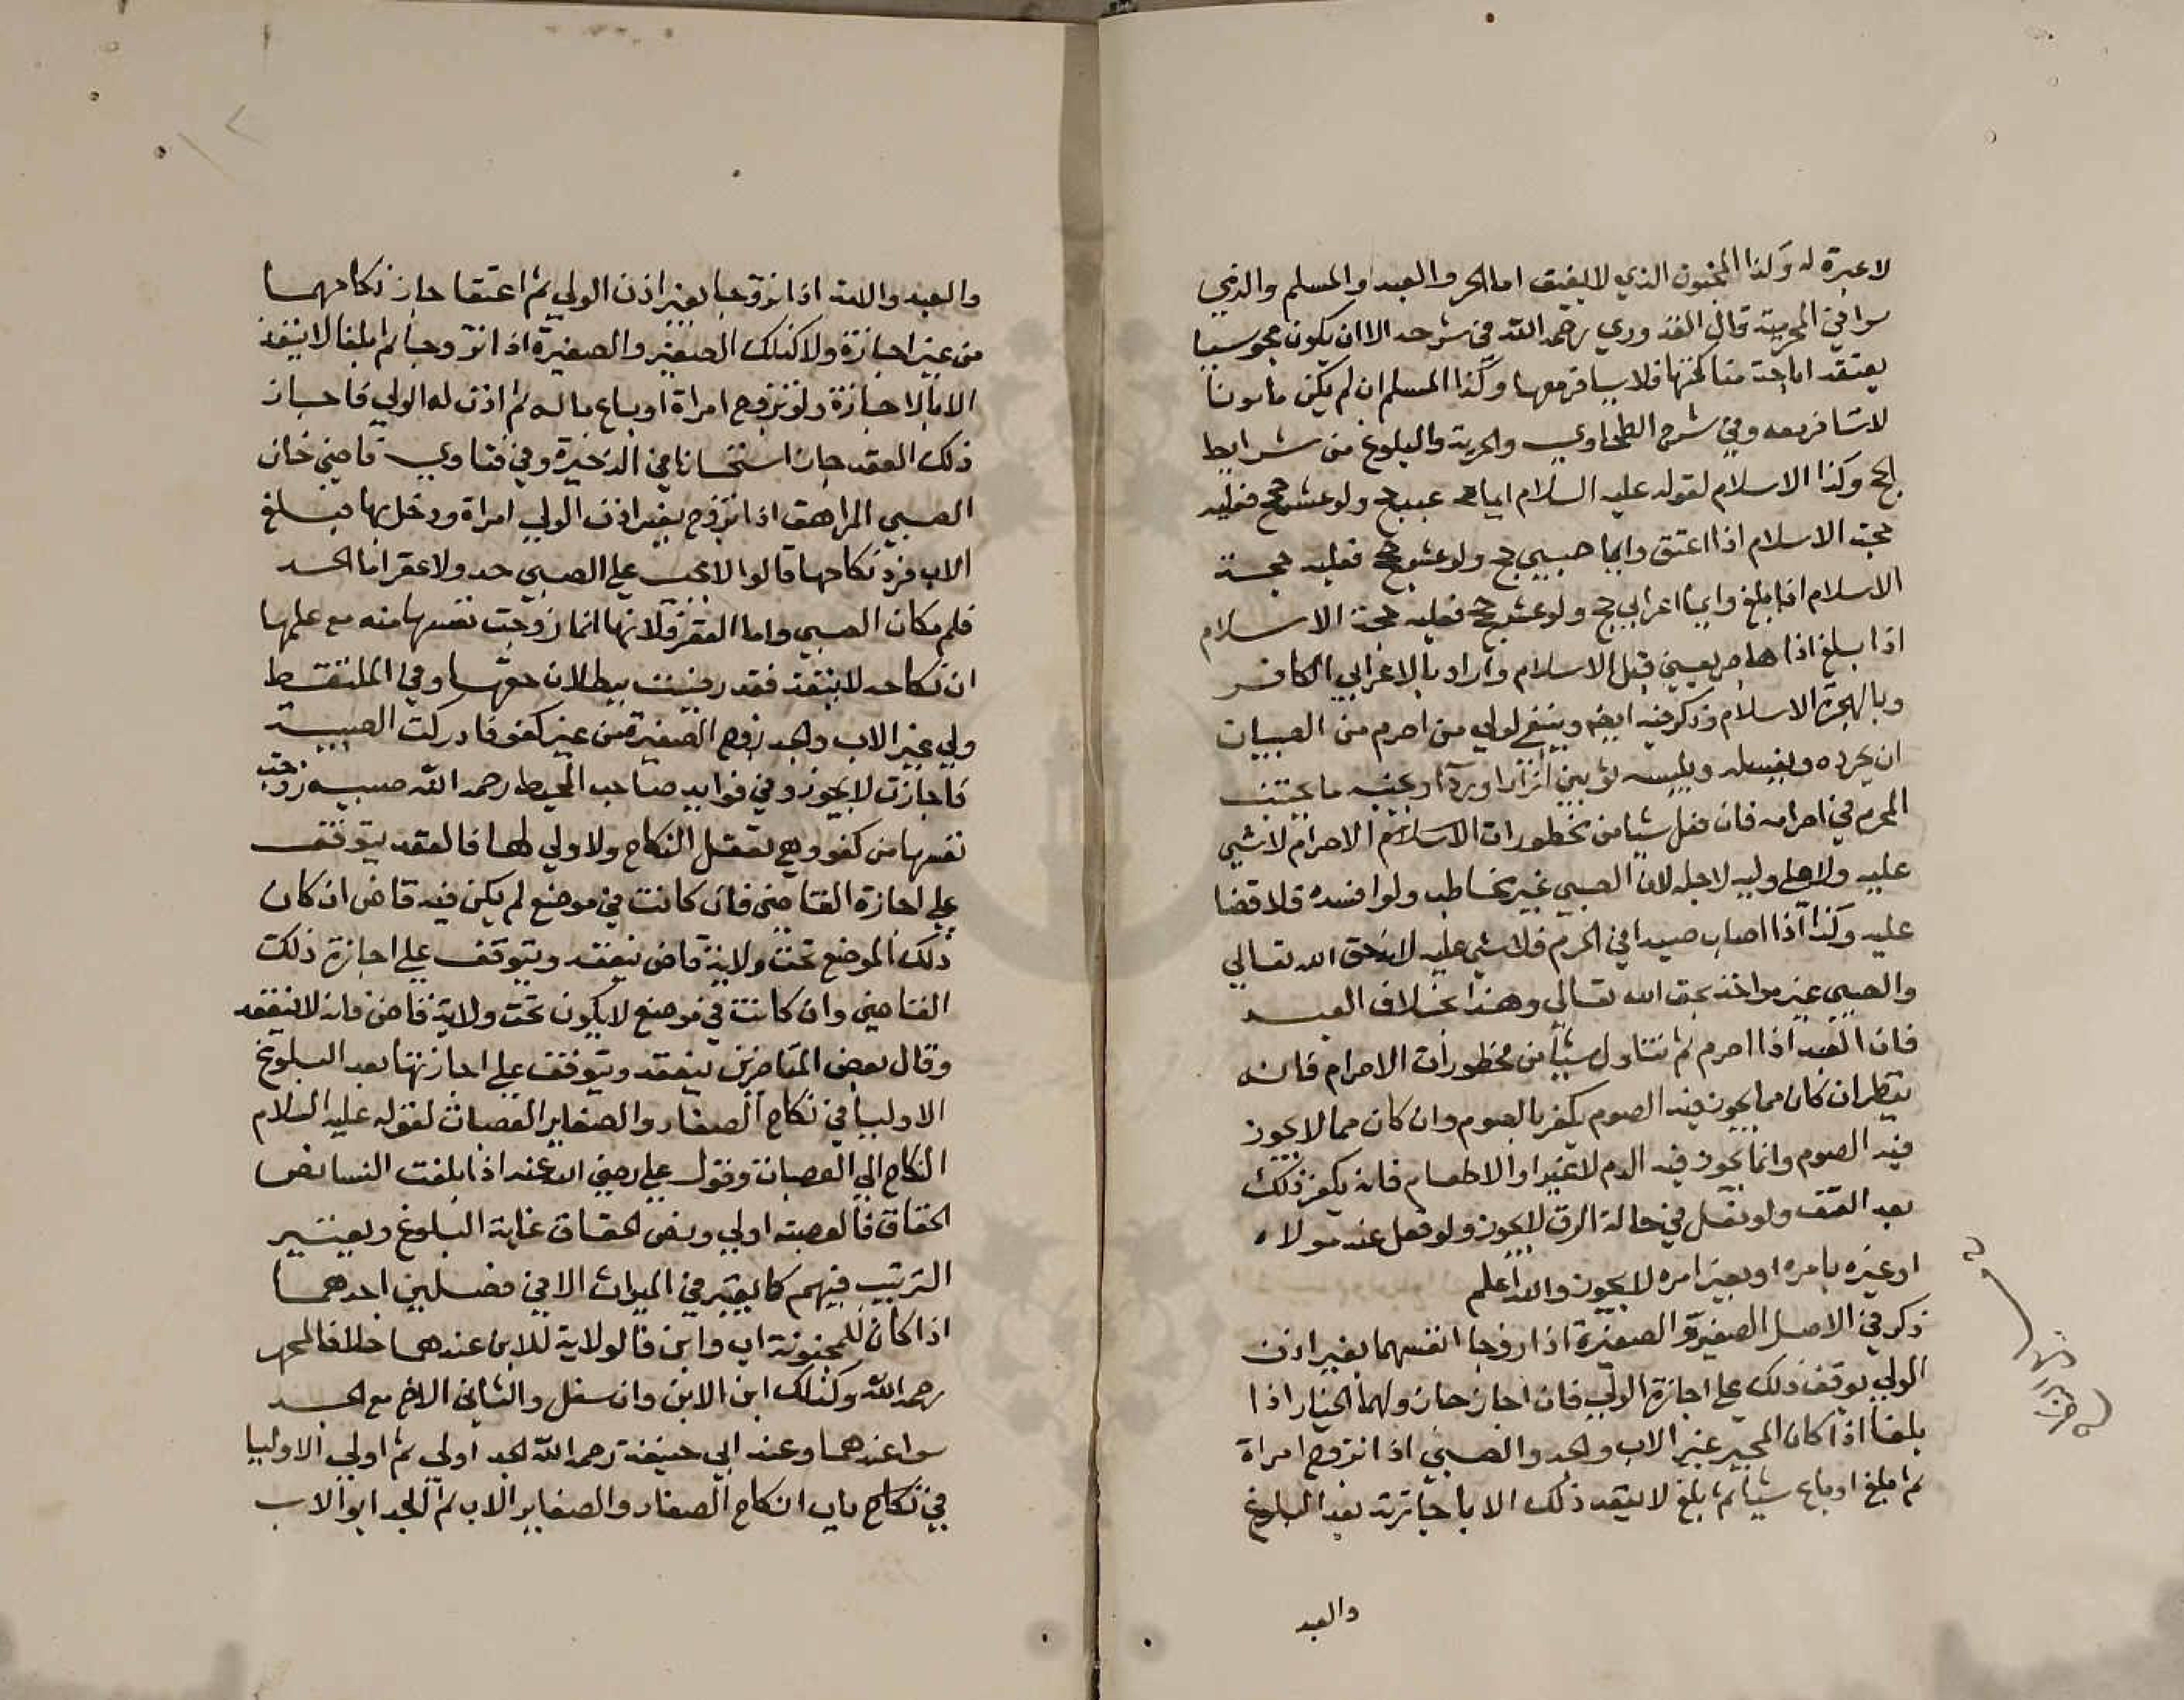 لا عبرة له وكذا المجنون الذي لا يفيق اما الحر والعبد والمسلم والذمي
سوا في المحرمية قال القدوري رحمه الله في شرحه الا ان يكون مجوسيا
يعتقد اباحة مناكحتها فلا يسافر معها وكذا المسلم ان لم يكن مامونا
لا تسافر معه وفي شرح الطحاوي والحرية والبلوغ من شرايط
الحج وكذا الاسلام لقوله عليه السلام ايما عبد حج ولو عشر حجج فعليه
حجة الاسلام اذا اعتق وايما صبي حج ولو عشر حجج فعليه حجة
الاسلام اذا بلغ وايما اعرابي حج ولو عشر حجج فعليه حجة الاسلام
اذا بلغ اذا هاجر يعني قبل الاسلام واراد بالاعرابي الكافر
وبالهجرة الاسلام وذكر فيه ايضا وينبغي لولي من احرم من الصبيان
ان يجرده ويغسله ويلبسه ثوبين ازارا وردآ ويجنبه ما يجتنب
المحرم في احرامه فان فعل شيا من محظورات الاحرام لا شي
عليه ولا على وليه لاجله لان الصبي غير مخاطب ولو افسده فلا قضا
عليه وكذا اذا اصاب صيدا في الحرم فلا شي عليه لانه حق الله تعالي
والصبي غير مواخذ بحق الله تعالي وهذا بخلاف العبد
فان العبد اذا احرم ثم تناول شيأ من محظورات الاحرام فانه
ينظر ان كان مما يجوز فيه الصوم يكفر بالصوم وان كان مما لا يجوز
فيه الصوم وانما يجوز فيه الدم لا غير او الاطعام فانه يكفر ذلك
بعد العتق ولو فعل في حالة الرق لا يجوز ولو فعل عنه مولاه
او غيره بامره او بغير امره لا يجوز والله اعلم
ذكر في الاصل الصغير والصغيرة اذا زوجا انفسهما بغير اذن
الولي توقف ذلك علي اجازة الولي فان اجاز جاز ولهما الخيار اذا
بلغا اذا كان المجيز غير الاب والجد والصبي اذا تزوج امراة
ثم بلغ او باع شيا ثم بلغ لا ينفذ ذلك الا باجازته بعد البلوغ
والعبد
والعبد والامة اذا تزوجا بغير اذن الولي ثم اعتقا جاز نكاحهما
من غير اجازة ولا كذلك الصغير والصغيرة اذا تزوجا ثم بلغا لا ينفذ
الا بالاجازة ولو تزوج امراة او باع ماله ثم اذن له الولي فاجاز
ذلك العقد جاز استحسانا من الذخيرة وفي فتاوي قاضي خان
الصبي المراهق اذا تزوج بغير اذن الولي امراة ودخل بها فبلغ
الاب فرد نكاحها قالوا لا يجب علي الصبي حد ولا عقر اما الحد
فلمكان الصبي واما العقر فلانها انما زوجت نفسها منه مع علمها
ان نكاحه لا ينفذ فقد رضيت ببطلان حقها وفي الملتقط
ولي غير الاب والجد زوج الصغيرة من غير كفو فادركت الصبية
فاجازت لا يجوز وفي فوايد صاحب المحيط رحمه الله صبية زوجت
نفسها من كفو وهي تعقل النكاح ولا ولي لها فالعقد يتوقف
علي اجازة القاضي فان كانت في موضع لم يكن فيه قاض ان كان
ذلك الموضع تحت ولاية قاض ينعقد ويتوقف علي اجازة ذلك
القاضي وان كانت في موضع لا يكون تحت ولاية قاض فانه لا ينعقد
وقال بعض المتاخرين ينعقد ويتوقف علي اجازتها بعد البلوغ
الاوليا في نكاح الصغار والصغاير العصبات لقوله عليه السلام
النكاح الي العصبات وقول علي رضي الله عنه اذا بلغت النسا نص
الحقاق فالعصبة اولي ونص الحقاق غاية البلوغ ويعتبر
الترتيب فيهم كما يعتبر في الميراث الا في فصلين احدهما
اذا كان للمجنونة اب وابن فالولاية للابن عندهما خلافا لمحمد
رحمه الله وكذلك ابن الابن وان سفل والثاني الاخ مع الجد
سوا عندهما وعند ابي حنيفة رحمه الله الجد اولي ثم اولي الاوليا
في نكاح باب انكاح الصغار والصغاير الاب ثم الجد ابو الاب